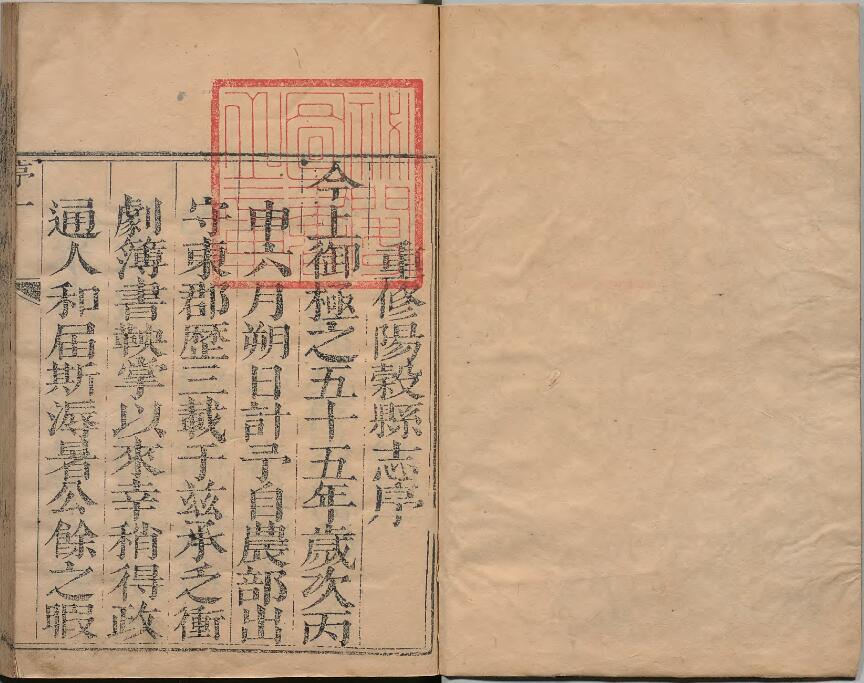 重修陽穀縣志序
今上御極之五十五年歲次丙
申六月朔日計予自農部出
守東郡歷三載于茲承乏衝
劇簿書鞅掌以來幸稍得政
通人和届斯溽暑公餘之暇
序一